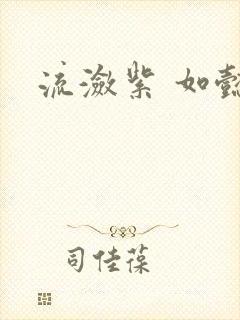 流潋紫 如懿
司佳葆